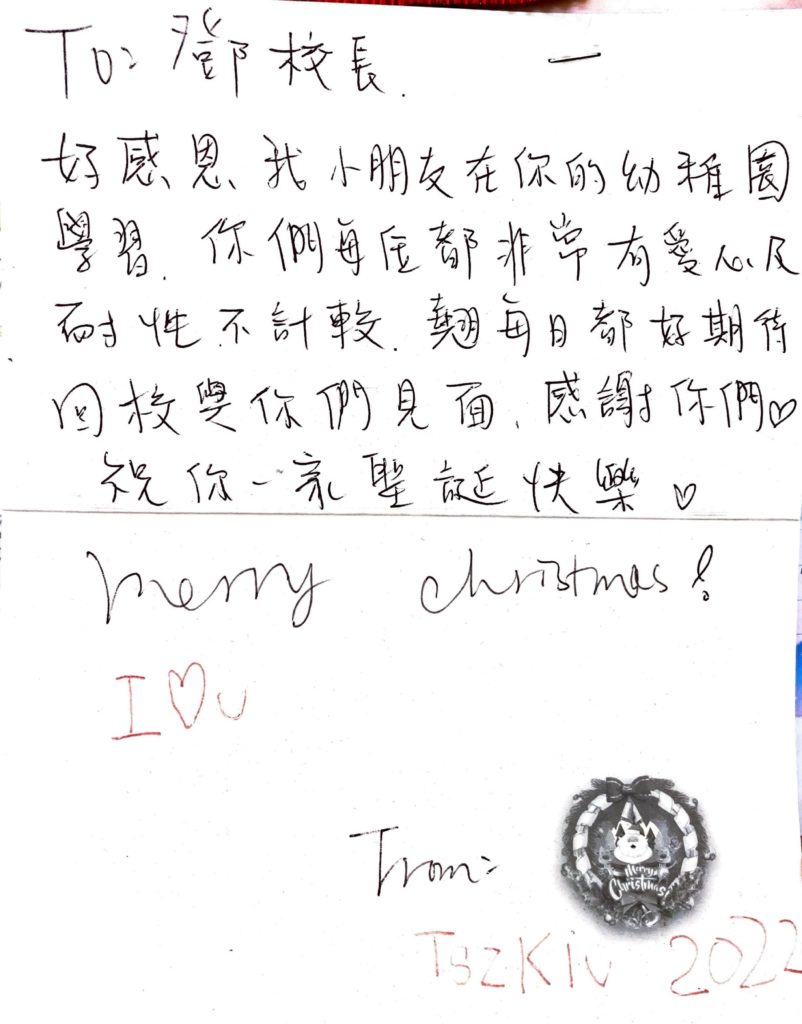 To: 鄧校長.
好感恩、我小朋友在你的幼稚園
學習. 你們每位都非常有愛心及
耐性不計較. 翹每日都好期待
回校與你們見面、感謝你們♡
祝你一家聖誕快樂♡
Merry Christmas!
I ♡ U
From:
Merry
Christmas!
TszKiu 2022